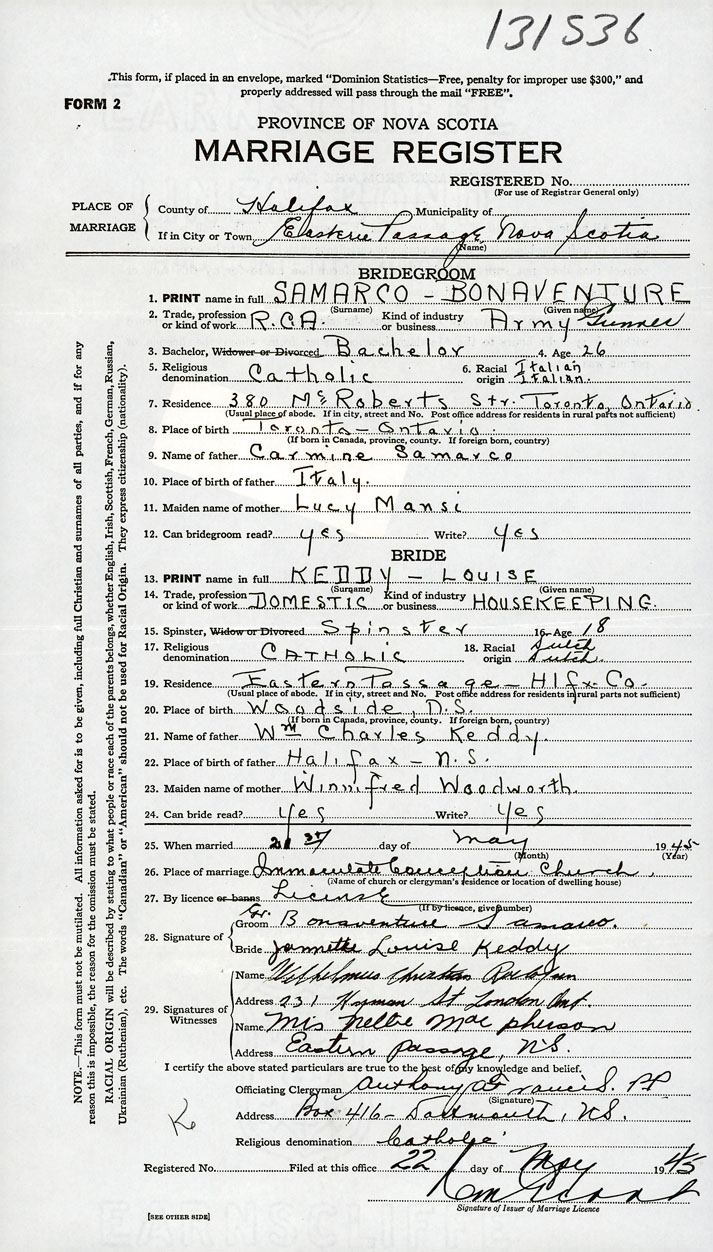 131536
.This form, if placed in an envelope, marked "Dominion Statistics—Free, penalty for improper use $300," and
properly addressed will pass through the mail "FREE".
FORM 2
PROVINCE OF NOVA SCOTIA
MARRIAGE REGISTER
REGISTERED No.
(For use of Registrar General only)
PLACE OF MARRIAGE
County of Halifax Municipality of
If in City or Town Eastern Passage, Nova Scotia
(Name)
BRIDEGROOM
1. PRINT name in full SAMARCO - BONAVENTURE
(Surname) (Given name)
2. Trade, profession or kind of work R.C.A. Kind of industry or business Army Gunner
3. Bachelor, Widower or Divorced Bachelor 4. Age 26
5. Religious denomination Catholic 6. Racial origin Italian Italian.
7. Residence 380 McRoberts Str. Toronto, Ontario.
(Usual place of abode. If in city, street and No. Post office address for residents in rural parts not sufficient)
8. Place of birth Toronto - Ontario.
(If born in Canada, province, county. If foreign born, country)
9. Name of father Carmine Samarco
10. Place of birth of father Italy.
11. Maiden name of mother Lucy Mansi
12. Can bridegroom read? yes Write? yes
BRIDE
13. PRINT name in full KEDDY - LOUISE
(Surname) (Given name)
14. Trade, profession or kind of work DOMESTIC Kind of industry or business HOUSEKEEPING.
15. Spinster, Widow or Divorced Spinster 16. Age 18
17. Religious denomination CATHOLIC 18. Racial origin Dutch Dutch.
19. Residence Eastern Passage - Hlfx. Co.
(Usual place of abode. If in city, street and No. Post office address for residents in rural parts not sufficient)
20. Place of birth Woodside, N.S.
(If born in Canada, province, county. If foreign born, country)
21. Name of father Wm Charles Keddy.
22. Place of birth of father Halifax - N.S.
23. Maiden name of mother Winnifred Woodworth.
24. Can bride read? yes Write? yes
25. When married 21 day of May 1945
(Month) (Year)
26. Place of marriage Immaculate Conception Church.
(Name of church or clergyman's residence or location of dwelling house)
27. By licence or banns License
(If by licence, give number)
28. Signature of
Groom Gr. Bonaventure Samarco.
Bride Jannette Louise Keddy
29. Signatures of Witnesses
Name Christian
Address 231 Hyman St London Ont.
Name Mrs Nellie Mac pherson
Address Eastern Passage, N.S.
I certify the above stated particulars are true to the best of my knowledge and belief.
Officiating Clergyman Anthony Francis. PP
(Signature)
Address Box 416 - Dartmouth, N.S.
Religious denomination Catholic
Registered No. Filed at this office 22 day of May 1945
Signature of Issuer of Marriage Licence
[SEE OTHER SIDE]
NOTE.—This form must not be mutilated. All information asked for is to be given, including full Christian and surnames of all parties, and if for any
reason this is impossible, the reason for the omission must be stated.
RACIAL ORIGIN will be described by stating to what people or race each of the parents belongs, whether English, Irish, Scottish, French, German, Russian,
Ukrainian (Ruthenian), etc. The words "Canadian" or "American" should not be used for Racial Origin. They express citizenship (nationality).